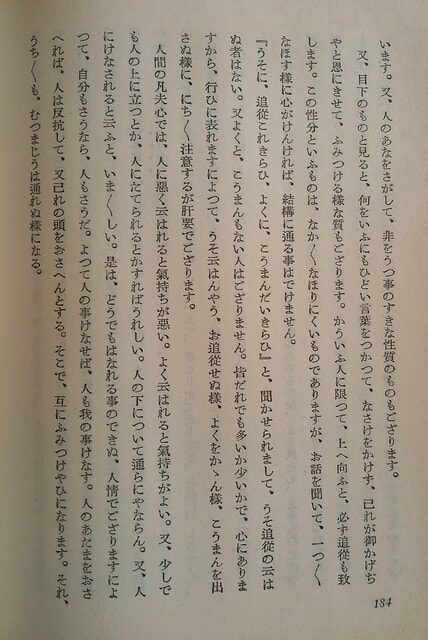 います。又、人のあなをさがして、非をうつ事のすきな性質のものもござります。
又、目下のものと見ると、何をいふにもひどい言葉をつかつて、なさけをかけず、己れが御かげぢ
やと恩にきせて、ふみつける樣な質もござります。かういふ人に限つて、上へ向ふと、必ず追從も致
します。この性分といふものは、なか〳〵なほりにくいものでありますが、お話を聞いて、一つ〳〵
なほす樣に心がけんければ、結構に通る事はでけません。
『うそに、追從これきらひ、よくに、こうまんだいきらひ』と、聞かせられまして、うそ追從の云は
ぬ者はない。又よくと、こうまんもない人はござりません。皆だれでも多いか少いかで、心にありま
すから、行ひに表れますによつて、うそ云はんやう、お追從せぬ樣、よくをかゝん樣、こうまんを出
さぬ樣に、にち〳〵注意するが肝要でござります。
人間の凡夫心では、人に惡く云はれると氣持が惡い。よく云はれると氣持ちがよい。又、少しで
も人の上に立つとか、人にたてられるとかすればうれしい。人の下について通らにやならん。又、人
にけなされると云ふと、いま〳〵しい。是は、どうでもはなれる事のできぬ、人情でござりますによ
つて、自分もさうなら、人もさうだ。よつて人の事けなせば、人も我の事けなす。人のあたまをおさ
へれば、人は反抗して、又己れの頭をおさへんとする。そこで、互にふみつけやひになります。それ、
うち〳〵も、むつまじうは通れぬ樣になる。
184